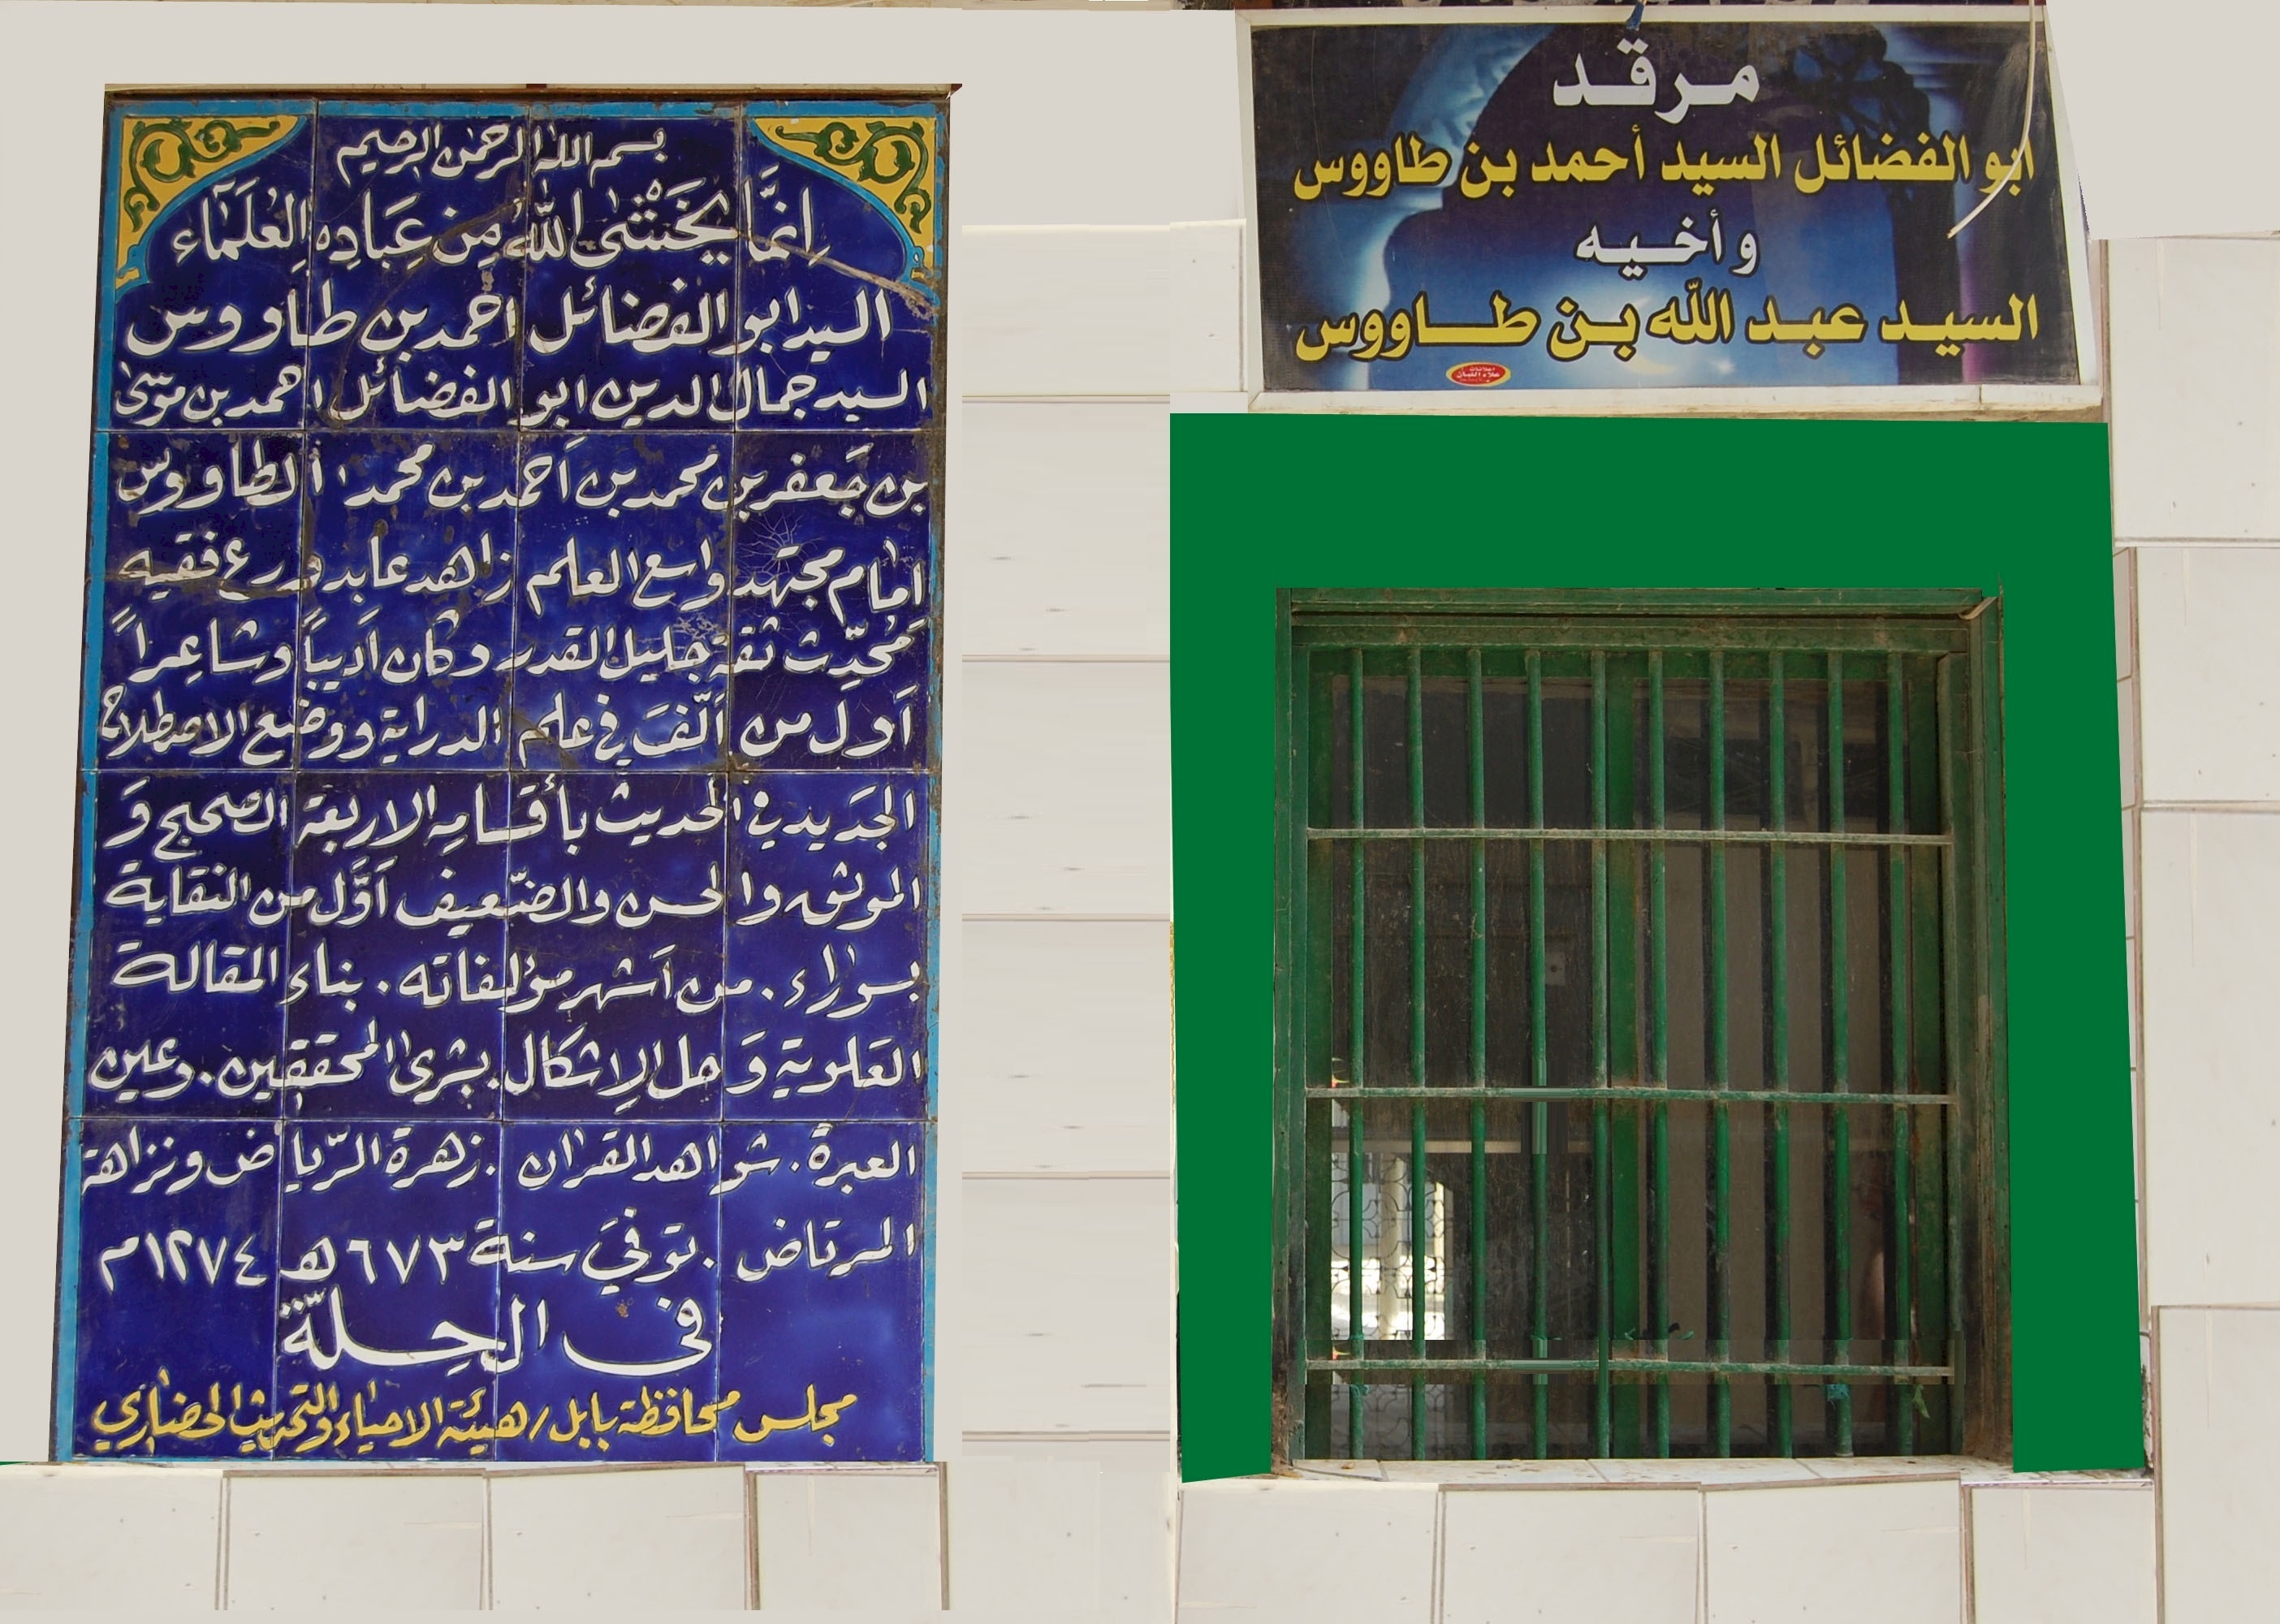 بسم الله الرحمن الرحيم
إِنَّمَا يَخْشَىٰ اللّٰهَ مِن عِبَادِهِ العُلَمَاء
السيد ابو الفضائل احمد بن طاووس
السيد جمال الدين ابو الفضائل احمد بن موسى
بن جَعفر بن محمد بن أَحمد بن محمد الطاووس
إمام مجتهد واسع العلم زاهد عابد ورع فقيه
مُحَدِّث ثقة جليل القدر وكان اَديباً وشاعِراً
اَول من اَلَّفَ في علم الدراية ووضع الاصطلاح
الجَديد في الحديث بأقسامِه الاربعة الصحيح وَ
الموثق والحسن والضّعيف اَوَّل من النقاية
بسوراء . من اَشهر مؤلفاته . بناء المقالة
العَلوية وَحل الإشكال . بشرى المحققين . وعين
العبرة . شواهد القران . زهرة الرّياض ونزاهة
المرتاض . توفيَ سنة ٦٧٣هـ ١٢٧٤م
في الحِلّة
مجلس محافظة بابل / هيئة الاحياء والتحديث الحضاري
مرقد
ابو الفضائل السيد أحمد بن طاووس
وأخيه
السيد عبد اللّه بن طاووس